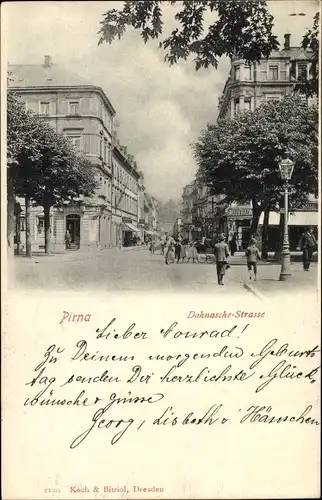 Pirna Dohnasche-Strasse
Lieber Konrad!
Zu Deinem morgenden Geburts
tag senden Dir herzlichste Glück
wünsche & Grüsse
Georg, Lisbeth & Hänschen
Koch & Bitriol, Dresden